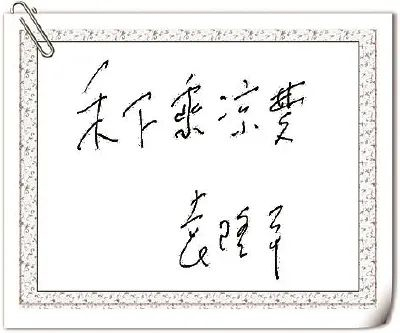 禾下乘凉夢
袁隆平